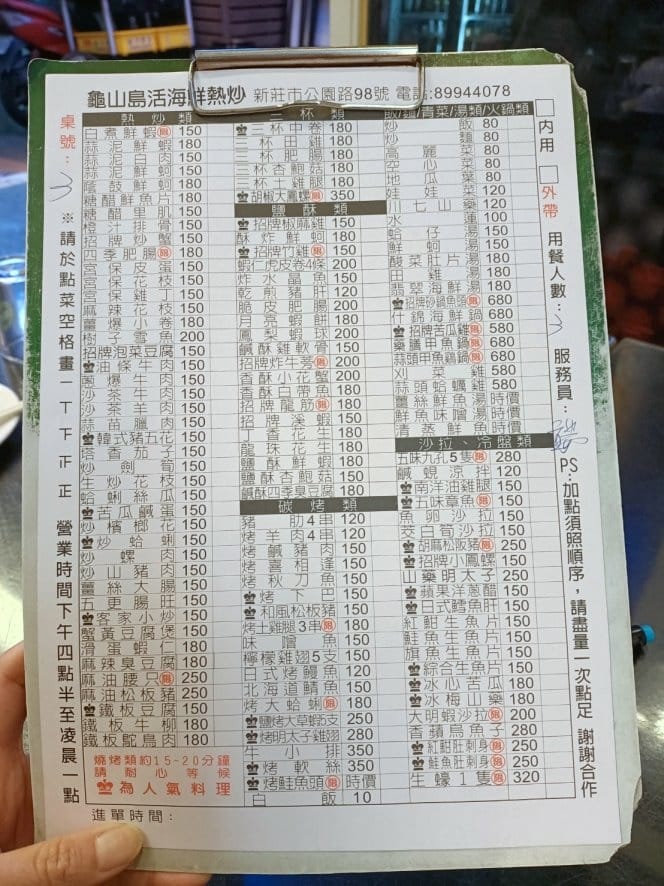 龜山島活海鮮熱炒 新莊市公園路98號 電話:89944078
桌號: 3
※請於點菜空格畫一丁下正正
營業時間下午四點半至凌晨一點
熱炒類
白煮鮮蝦限 150
蒜泥鮮蝦 180
蒜泥白肉 150
蒜泥鮮蚵 150
蔭鼓鮮蚵 180
糖醋鮮魚片 180
糖醋里肌 150
橙汁排骨 150
招牌炒蟹 150
四季肥腸限 180
宮保皮蛋 150
宮保花枝 150
宮保雞丁 150
麻辣花枝 150
薑爆小卷 180
樹子雪魚 200
招牌泡菜豆腐 150
油條牛肉 150
蔥爆牛肉 150
沙茶牛肉 150
沙茶羊肉 150
蒜苗臘肉 150
韓式豬五花 150
塔香茄子 150
炒劍筍 150
生炒花枝 150
蛤蜊絲瓜 150
苦瓜鹹蛋 150
炒檳榔花 150
炒蛤蜊 150
炒螺肉 150
炒山豬肉 150
薑絲大腸 150
五更腸旺 150
客家小炒 150
蟹黃豆腐煲 150
滑蛋蝦仁 180
麻辣臭豆腐 180
麻油腰只限 250
麻油松板豬 250
鐵板豆腐 150
鐵板牛柳 180
鐵板鴕鳥肉 180
燒烤類約15-20分鐘
請耐心等候
為人氣料理
進單時間:
三杯類
三杯中卷 180
三杯田雞 180
三杯肥腸 180
三杯杏鮑菇 180
三杯土雞 180
胡椒大鳳螺限 350
鹽酥類
招牌椒麻雞 150
酥炸鮮蚵 180
招牌竹雞限 150
蝦仁虎皮卷4條 200
炸水晶魚 150
乾煎豬肝 120
脆皮肥腸 200
月亮蝦餅 180
鳳梨蝦球 200
鹹酥雞軟骨 150
招牌炸牛蒡限 200
香酥小花蟹 200
香酥白帶魚 180
招牌龍筋限 180
招牌溪蝦 150
丁香花生 180
龍珠花生 180
鹽酥鮮蝦 180
鹽酥杏鮑菇 150
鹹酥四季臭豆腐 180
碳烤類
豬肋4串 120
烤羊肉4串 120
烤鹹豬肉 150
烤喜相逢 150
烤秋刀魚 150
烤下巴 150
和風松板豬 150
烤土雞腿3串限 180
味噌魚 150
檸檬雞翅5支 150
日式烤鰻魚 120
北海道鯖魚 150
烤大蛤蜊限 180
鹽烤大草蝦5支 250
烤明太子雞翅 280
牛小排 350
烤軟絲 350
烤鮭魚頭限 時價
白飯 10
飯/麵/青菜/湯類/火鍋類
炒飯 80
炒麵 80
高麗菜 80
空心菜 80
地瓜葉 80
娃娃菜 120
川七山藥 120
水蓮 100
蛤仔湯 150
鮮蚵湯 150
酸菜肚片湯 180
田雞湯 180
翡翠海鮮湯 180
招牌砂鍋魚頭限 680
什錦海鮮鍋 680
招牌苦瓜雞限 580
藥膳甲魚鍋限 680
蒜頭甲魚雞鍋限 680
刈菜雞 580
蒜頭蛤蠣雞 580
薑絲鮮魚湯 時價
鮮魚味噌湯 時價
清蒸鮮魚 時價
沙拉、冷盤類
五味九孔5隻限 280
鹹蜆涼拌 120
南洋油雞腿 150
五味章魚限 150
魚卵沙拉 150
茭白筍沙拉 150
胡麻松阪豬限 250
招牌小鳳螺 150
山藥明太子 250
蘋果洋蔥醋 150
日式鱈魚肝 150
紅魽生魚片 150
鮭魚生魚片 150
旗魚生魚片 150
綜合生魚片 150
冰心苦瓜 180
冰梅山藥 180
大明蝦沙拉限 200
香蘋烏魚子 280
紅魽肚刺身限 250
鮭魚肚刺身限 250
生蠔1隻限 320
內用
外帶
用餐人數: 3
服務員:
PS:加點須照順序,請盡量一次點足 謝謝合作